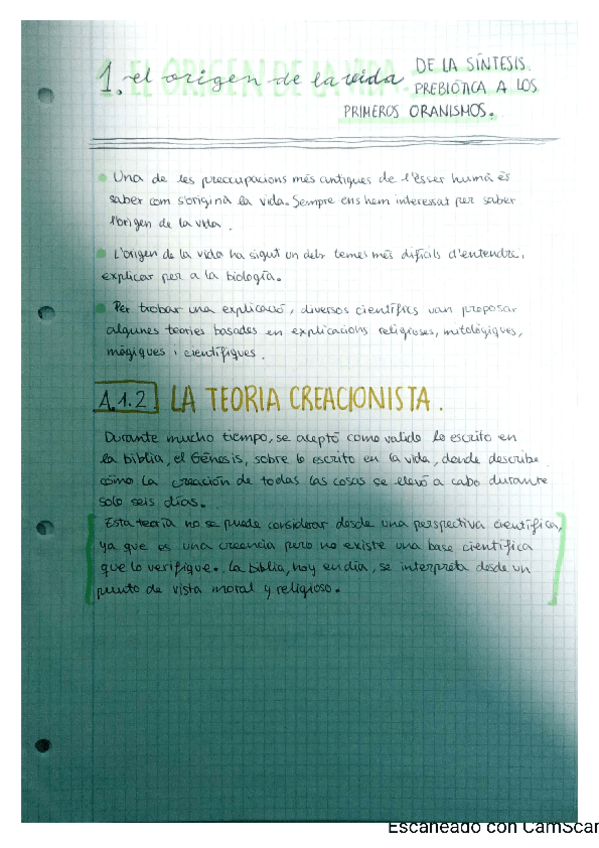 1. el origen de la vida DE LA SÍNTESIS
PREBIÓTICA A LOS
PRIMEROS ORANISMOS.
Una de les preocupacions més antigues de l'ésser humà és
saber com s'origina la vida. Sempre ens hem interessat per saber
l'origen de la vida.
L'origen de la vida ha sigut un dels temes més difícils d'entendre i
explicar per a la biologia.
Per trobar una explicació, diversos científics van proposar
algunes teories basades en explicacions religioses, mitològiques,
màgiques i científiques.
A.1.2 LA TEORIA CREACIONISTA.
Durante mucho tiempo, se aceptó como valido lo escrito en
la biblia, el Génesis, sobre lo escrito en la vida, donde describe
cómo La creación de todas las cosas se llevó a cabo durante
solo seis días.
Esta teoría no se puede considerar desde una perspectiva científica,
ya que es una creencia pero no existe una base científica
que lo verifique. La biblia, hoy en día, se interpreta desde un
punto de vista moral y religioso.
Escaneado con CamScan